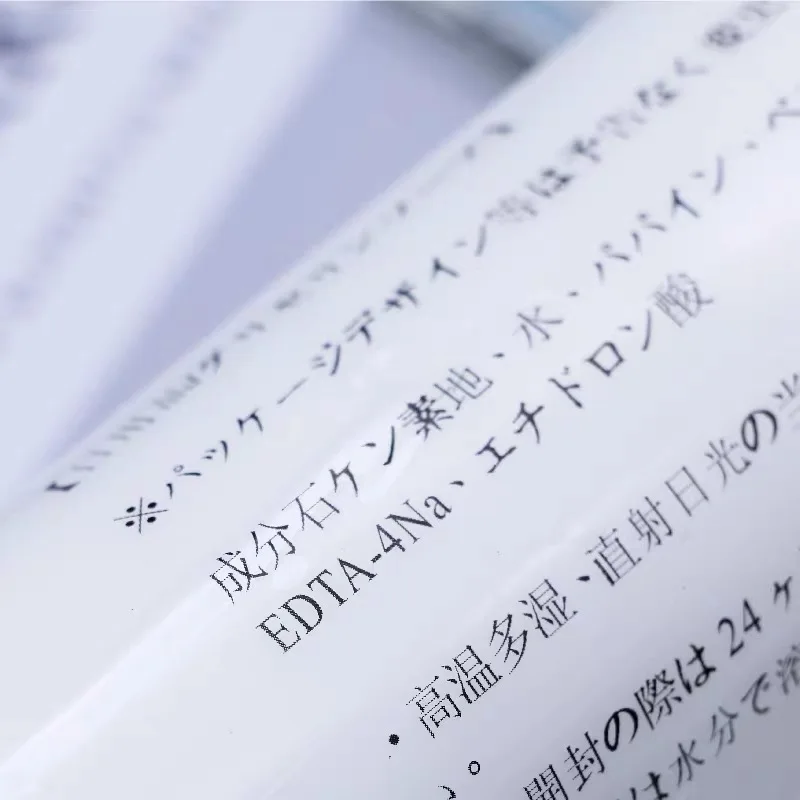 ※パッケージデザイン等は予告なく変更
成分石ケン素地、水、パパイン、ベ
EDTA-4Na、エチドロン酸
・高温多湿、直射日光の当
い。
開封の際は24ケ
は水分で溶